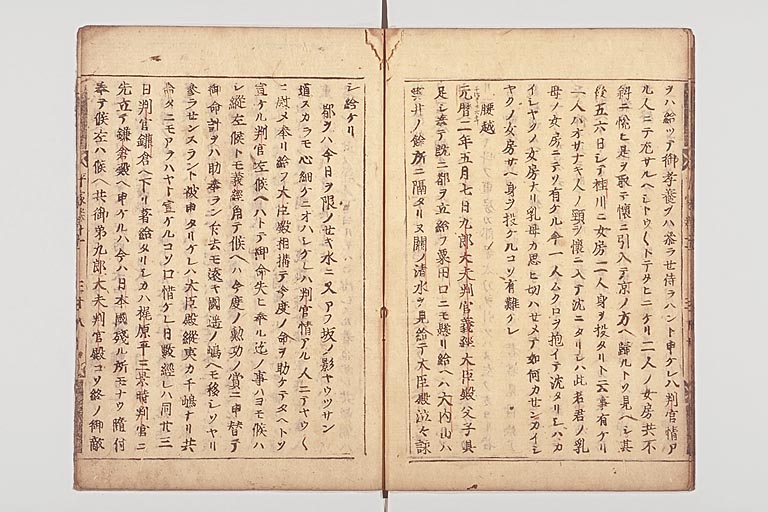 ヲハ給ツテ御孝養ヲハ参ラせ侍ラハント申ケレハ判官情ア
ル人ニテ尤サルヘシトウ〱トテタヒニケリ二人ノ女房共不
斜ニ悦ヒ是ヲ取テ懐ニ引入テ京ノ方へ歸ルトソ見ヘシ其
後五六日シテ桂川ニ女房二人身ヲ投タリト云事有ケリ
一人ハオサナキ人ノ頸ヲ懐ニ入テ沈ミタリシハ此若君ノ乳
母ノ女房ニテソ有ケル今一人ムクロヲ抱イテ沈タリシハカ
イシヤクノ女房ナリ乳母カ思ヒ切ハせメテ如何カせンカイシ
ヤクノ女房サヘ身ヲ投ケルコソ有難ケレ
腰越
元暦二年五月七日九郎大夫判官義経大臣殿父子具
足シ奉テ既ニ都ヲ立給フ粟田口ニモ懸リ給ヘハ大内山ハ
雲井ノ餘所ニ隔タリヌ関ノ清水ヲ見給テ大臣殿泣々詠
シ給ケリ
都ヲハ今日ヲ限ノせキ水ニ又アフ坂ノ影ヤウツサン
道スカラモ心細ケニオハシケレハ判官情アル人ニテヤウ〱
ニ慰メ奉リ給フ大臣殿相構テ今度ノ命ヲ助ケテタヘトソ
宣ケル判官左候ヘハトテ御命失ヒ奉ル迄ノ事ハヨモ候ハ
シ縦左候トモ義經角テ候ヘハ今度ノ勲功ノ賞ニ申替テ
御命計ヲハ助奉ラン去モ遠キ國遥ノ嶋へモ移シソヤリ
参ラせンスラント被申タリケレハ大臣殿縦夷カ千嶋ナリ共
命タニモアラハヤト宣ケルコソ口惜ケレ日數經レハ同廿三
日判官鎌倉へ下リ著給タリシカハ梶原平三景時判官ニ
先立テ鎌倉殿へ申ケルハ今ハ日本國残ル所モナウ隨付
奉テ候左ハ候へ共御弟九郎大夫判官殿コソ終ノ御敵